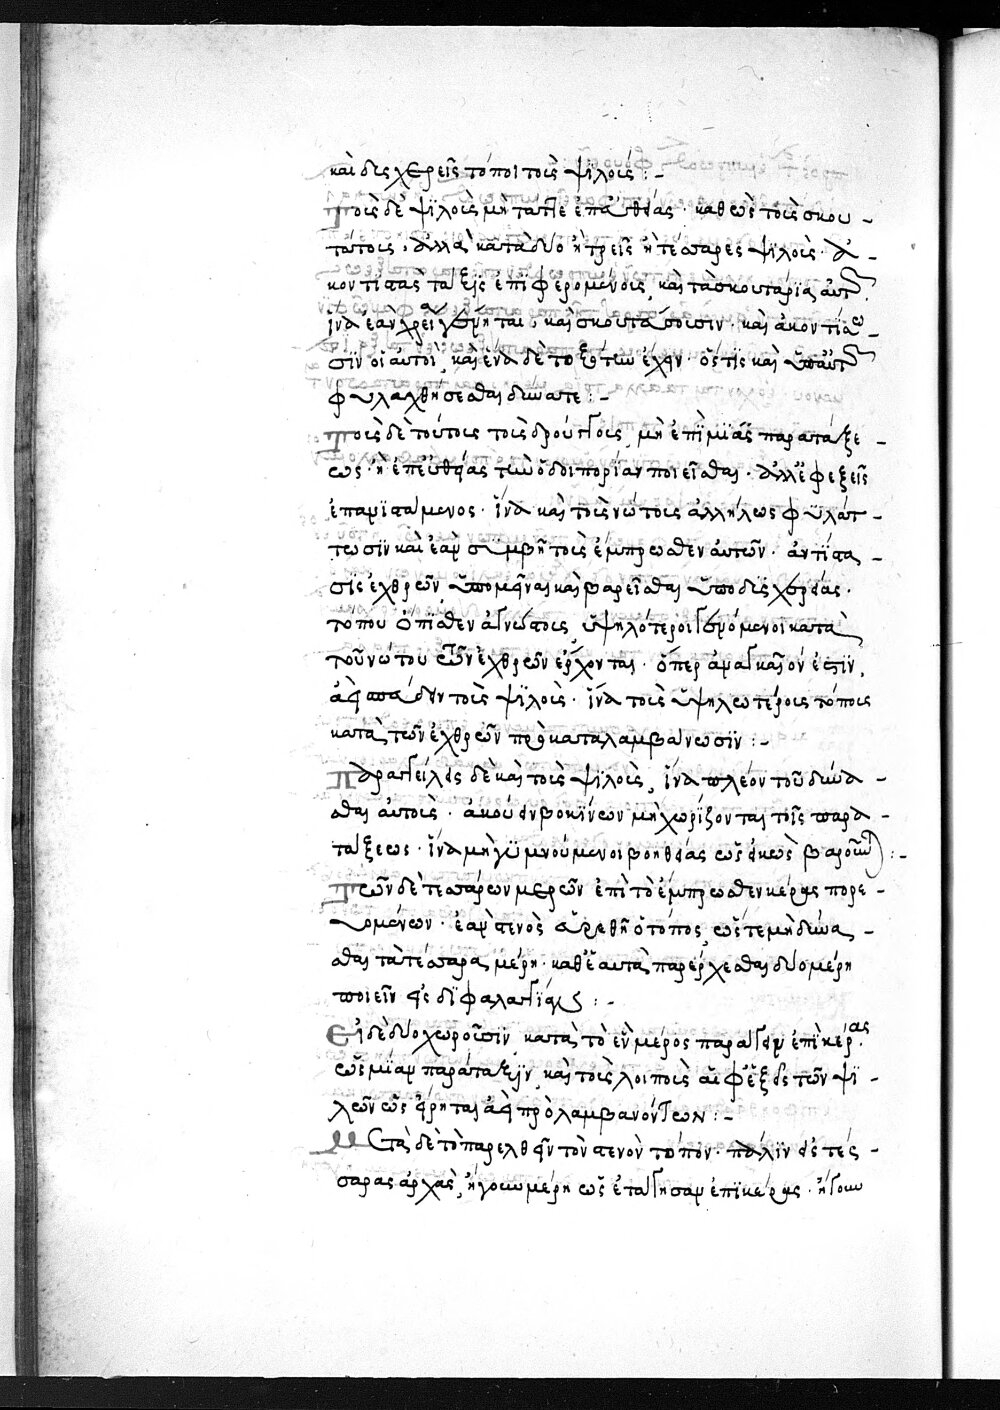 καὶ δυσχερεῖς τόποι τοὺς ψϊλούς :-
Τοὺς δὲ ψϊλοὺς μὴ τάττε ἐπ' εὐθείας · καθὼς τοὺς σκου -
τάτους · ἀλλὰ κατὰ δύο ἢ τρεῖς ἢ τέσσαρες ψϊλοὺς · ἀ -
κοντίστας τάξεις ἐπιφερομένοις, καὶ τὰ σκουτάρια αὐτῶν
ἵνα ἐὰν χρεία γένηται, καὶ σκουτεύσουσιν · καὶ ἀκοντίσω -
σϊν οἱ αὐτοὶ, καὶ ἕνα δὲ τοξότην ἔχειν · ὅστις καὶ ὑπ' αὐτῶν
φυλαχθήσεσθαι δύναται :-
Τοὺς δὲ τούτους τοὺς δρούγγους, μὴ ἐπὶ μϊᾶς παρατάξε -
ως · ἢ ἐπ' εὐθείας τὴν ὁδοιπορίαν ποιεῖσθαι · ἀλλ' ἐφεξεῖς
ἐπαρϊστάμενος · ἵνα καὶ τοὺς νώτους ἀλλήλως φϋλάτ -
τωσϊν καὶ ἐὰν συμβῆ τοὺς ἔμπρωσθεν αὐτῶν · ἀντίστα -
σϊς ἐχθρῶν ὑπομεῖναι καὶ βαρεῖσθαι ὑπὸ δυσχερείας ·
τόπου ὄπϊσθεν ἀγνώτους ὑψηλότεροι γενόμενοι κατὰ
τοῦ νώτου τῶν ἐχθρῶν ἔρχονται · ὅπερ ἀναγκαῖον ἐστϊν,
ἀεὶ σπεύδειν τοὺς ψϊλοὺς · ἵνα τοὺς ὑψηλωτέροις τόποις
κατὰ τῶν ἐχθρῶν προκαταλαμβάνωσϊν :-
Παραγγείλεις δὲ καὶ τοὺς ψϊλοὺς, ἵνα πλέον τοῦ δύνα -
σθαι αὐτοὺς · ἀκούειν βοκίνων μὴ χωρίζονται τοῖς παρα -
τάξεως · ἵνα μὴ γϋμνούμενοι βοηθείας
Τῶν δὲ τεσσάρων μερῶν ἐπὶ τὸ ἔμπρωσθεν κέρας πορε -
υομένων · ἐὰν στενὸς εὑρεθῆ ὁ τόπος ὥστε μὴ δύνα -
σθαι τὰ τέσσαρα μέρη · καθ' ἑαυτὰ παρέρχεσθαι δύο μέρη
ποιεῖν εἰς δϊφαλαγγϊας :-
Εἰ δὲ δύο χωροῦσϊν κατὰ τὸ ἓν μέρος παράγειν ἐπὶ κέρας
ὡς μίαν παράταξϊν, καὶ τοὺς λοιποὺς ἐφ' ἑξῆς τῶν ψϊ -
λῶν ὡς εἴρηται ἀεὶ προλαμβανόντων :-
Μετὰ δὲ τὸ παρελθεῖν τὸν στενὸν τόπον · πάλϊν εἰς τέσ -
σαρας ἀρχὰς, ἤγουν μέρη ὡς ἐτάγησαν ἐπϊκέρας · ἤγουν